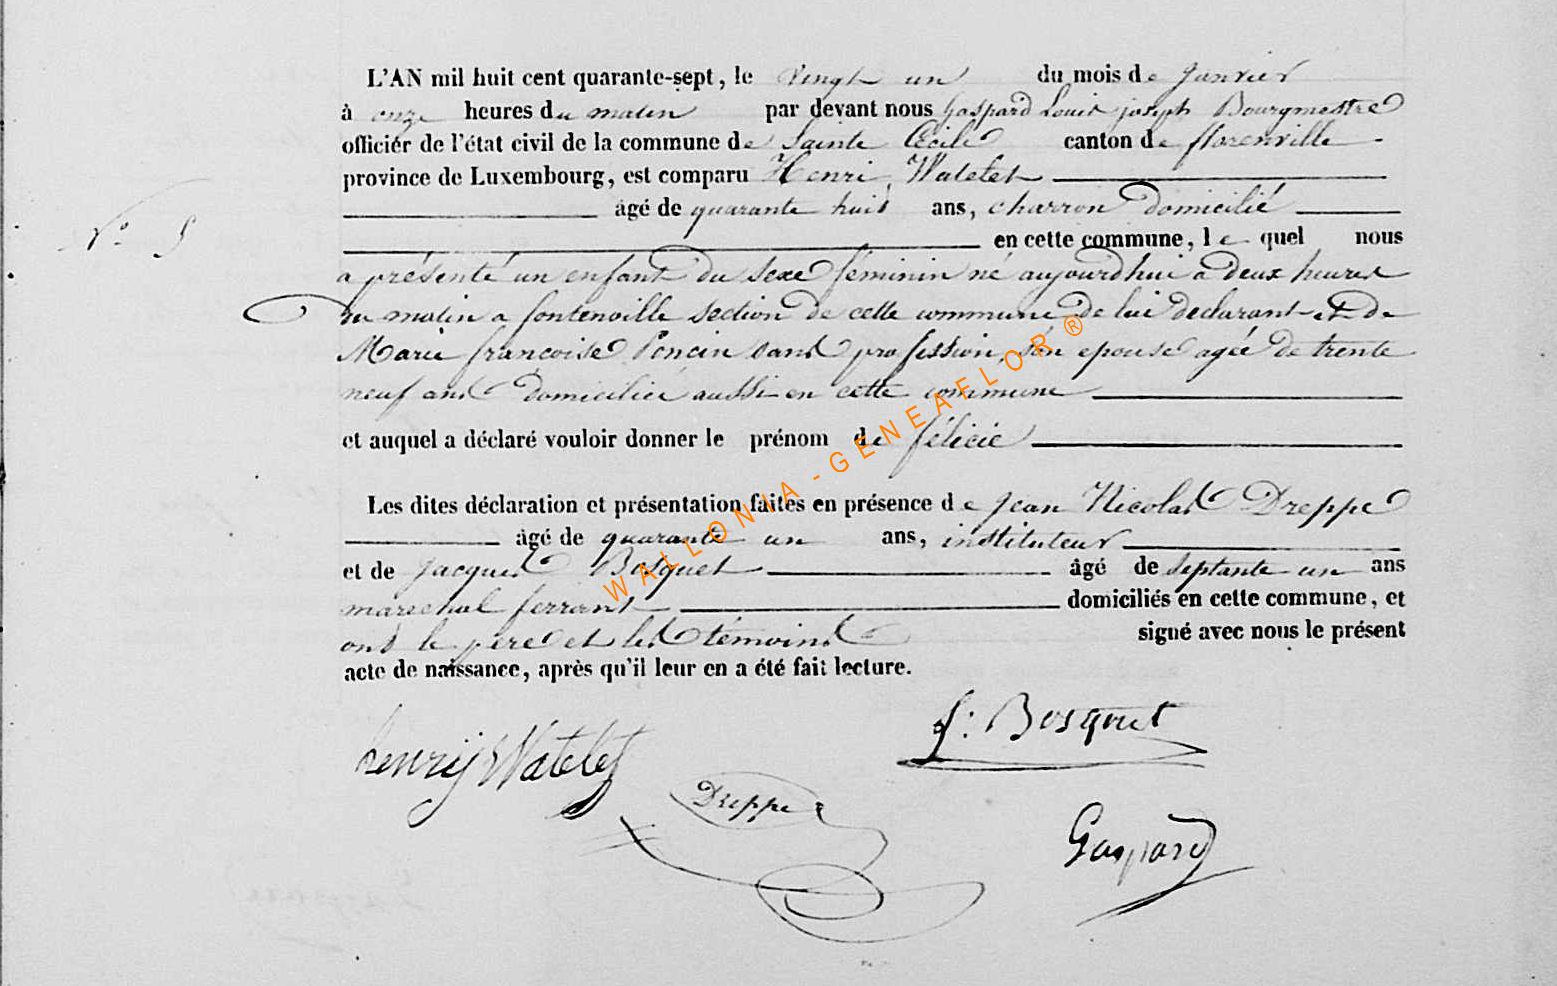 L'AN mil huit cent quarante-sept, le vingt un du mois de Janvier
à onze heures du matin par devant nous Gaspard Louis joseph Bourgmestre
officiér de l'état civil de la commune de Sainte Cécile canton de florenville
province de Luxembourg, est comparu Henri Watelet
âgé de quarante huit ans, charron domicilié
N° 5
en cette commune, le quel nous
a présenté un enfant du sexe féminin né aujourd'hui a deux heures
du matin a fontenoille section de cette commune de lui declarant et de
Marie françoise Poncin sans profession, son epouse agée de trente
neuf ans domiciliée aussi en cette commune
et auquel a déclaré vouloir donner le prénom de félicie
Les dites déclaration et présentation faites en présence de Jean Nicolas Dreppe
âgé de quarante un ans, instituteur
et de Jacques Bosquet âgé de septante un ans
marechal ferrant domiciliés en cette commune, et
ont le père et les témoins signé avec nous le présent
acte de naissance, après qu'il leur en a été fait lecture.
henrij Watelet
J: Bosquet
Dreppe
Gaspard
WALLONIA-GENEAFLOR®